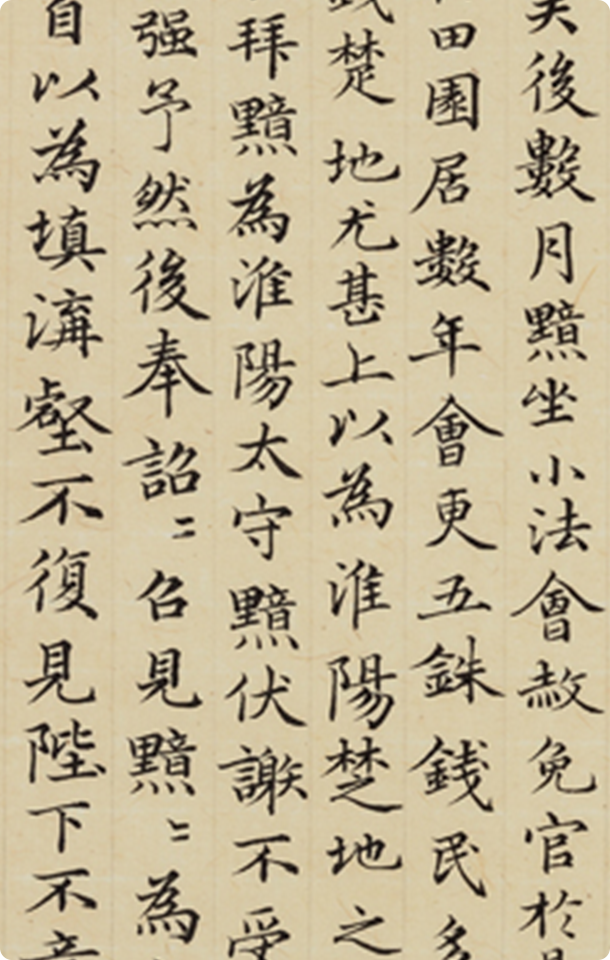 矣後數月黯坐小法會赦免官於
田園居數年會更五銖錢民多
錢楚地尤甚上以為淮陽楚地之
拜黯為淮陽太守黯伏謝不受
强予然後奉詔〻召見黯〻為
自以為填溝壑不復見陛下不